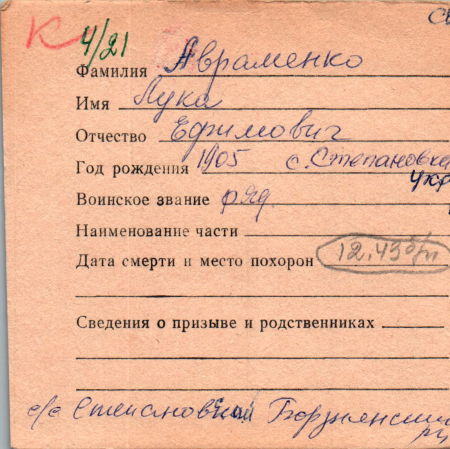 К 4/21
Фамилия Авраменко
Имя Лука
Отчество Ефимович
Год рождения 1905 с. Степановка
Укр
Воинское звание ряд
Наименование части
Дата смерти и место похорон 12.43 б/п
Сведения о призыве и родственниках
с/с Степановский Борзнянский
рц